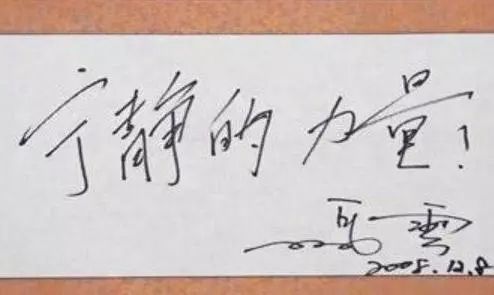 宁静的力量!
马雲
2008.12.8